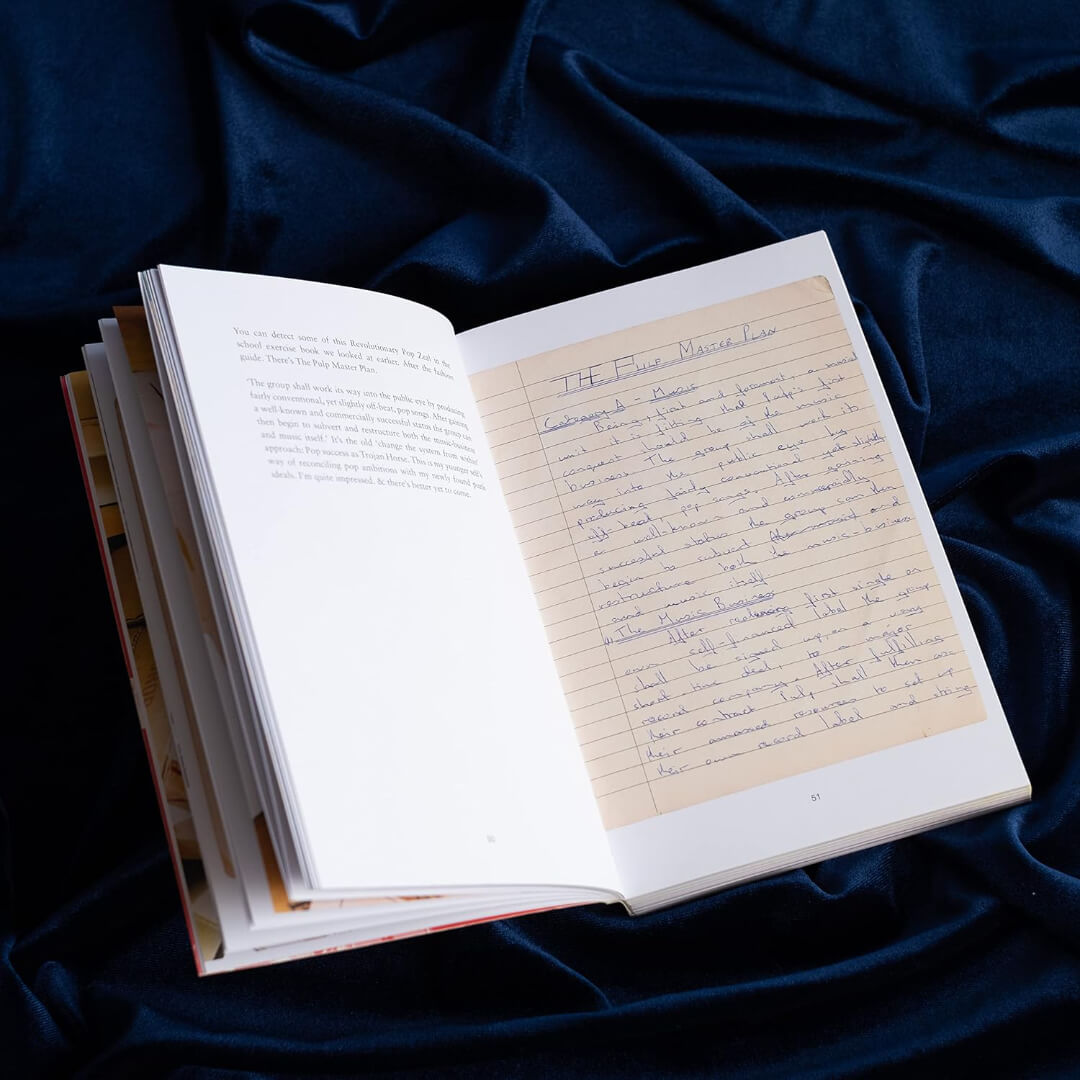 You can detect some of this Revolutionary Pop Zeal in the
school exercise book we looked at earlier. After the fashion
guide. There's The Pulp Master Plan.
'The group shall work its way into the public eye by producing
fairly conventional, yet slightly off-beat, pop songs. After gaining
a well-known and commercially successful status the group can
then begin to subvert and restructure both the music-business
and music itself.' It's the old 'change the system from within'
approach: Pop success as Trojan Horse. This is my younger self's
way of reconciling pop ambitions with my newly found punk
ideals. I'm quite impressed. & there's better yet to come.
50
THE PULP MASTER PLAN
Category A - Music
Being, first and foremost, a musical
unit it is fitting that Pulp's first
conquest should be of the music
business. The group shall work its
way into the public eye by
producing fairly conventional yet slightly
off-beat, pop songs. After gaining
a well-known and commercially
successful status the group can then
begin to subvert and
restructure both the music-business
and music itself.
The Music Business
After releasing first single on
own self-financed label the group
shall be signed up, on a very
short-time deal, to a major
record company. After fulfilling
their contract Pulp shall then use
their amassed resources to set up
their own record label and
51